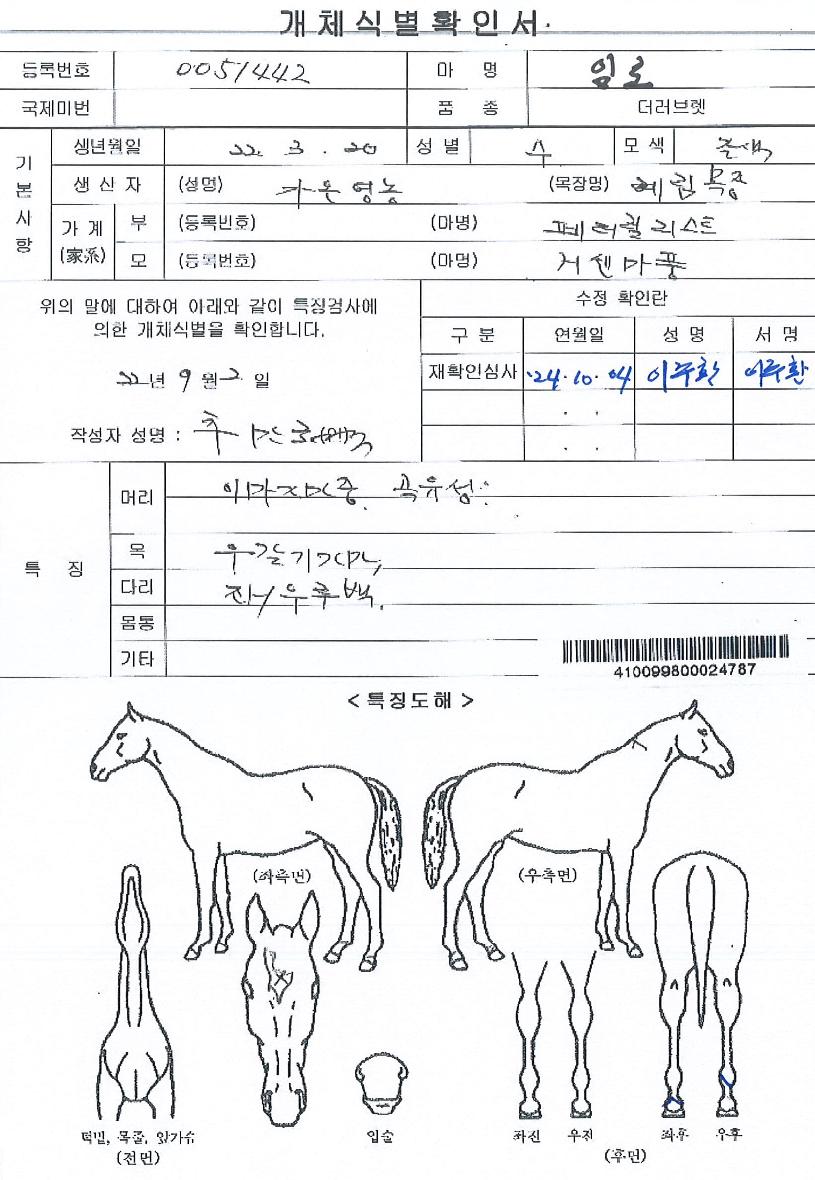 개체식별확인서
등록번호 0051442 마 명 임로
국제마번 품 종 더러브렛
기본사항
생년월일 22. 3. 20 성별 수 모색
생산자 (성명) 가온영농 (목장명) 혜림목장
가계(家系) 부 (등록번호) (마명) 페더럴리스트
모 (등록번호) (마명)
위의 말에 대하여 아래와 같이 특징검사에
의한 개체식별을 확인합니다.
22년 9월 2일
작성자 성명 :
수정 확인란
구 분 연월일 성 명 서 명
재확인심사 '24.10.04 이주환 이주환
. .
. .
특 징
머리
목
다리
몸통
기타
410099800024787
< 특징도해 >
(좌측면) (우측면)
턱밑, 목줄, 앞가슴 입술 좌전 우전 좌후 우후
(전면) (후면)